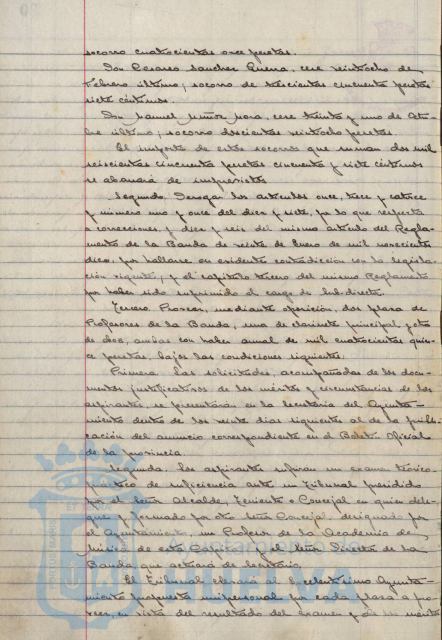 socorro cuatrocientas once pesetas.
Don Cesareo Sanchez Guerra, cese veintiocho de
Febrero último; socorro de trescientas cincuenta pesetas
siete céntimos.
Don Manuel Muñoz Mora, cese treinta y uno de Octu-
bre último; socorro doscientas veintiocho pesetas.
El importe de estos socorros que suman dos mil
seiscientas cincuenta pesetas cincuenta y siete céntimos
se abonará de imprevistos
Segundo. Derogar los artículos once, trece y catorce
y número uno y once del diez y siete, por lo que respecta
a correcciones y diez y seis del mismo artículo del Regla-
mento de la Banda de veinte de Enero de mil novecientos
diez, por hallarse en evidente contradicción con la legisla-
ción vigente; y el capítulo tercero del mismo Reglamento
por haber sido suprimido el cargo de Sub-director.
Tercero. Proveer, mediante oposición, dos plazas de
Profesores de la Banda, una de clarinete principal y otra
de oboe, ambas con haber anual de mil cuatrocientas quin-
ce pesetas, bajo las condiciones siguientes.
Primera. Las solicitudes, acompañadas de los docu-
mentos justificativos de los méritos y circunstancias de los
aspirantes, se presentarán en la Secretaría del Ayunta-
miento dentro de los veinte días siguientes al de la publi-
cación del anuncio correspondiente en el Boletín Oficial
de la provincia.
Segunda. Los aspirantes sufrirán un examen teórico
práctico de suficiencia ante un Tribunal presidido
por el Señor Alcalde, Teniente o Concejal en quien dele-
gue y formado por otro Señor Concejal, designado por
el Ayuntamiento, un Profesor de la Academia de
Música de esta Capital y el Señor Director de la
Banda, que actuará de Secretario.
El Tribunal elevará al Excelentísimo Ayunta-
miento propuesta unipersonal por cada plaza a pro-
veer, en vista del resultado del examen y de los mérito